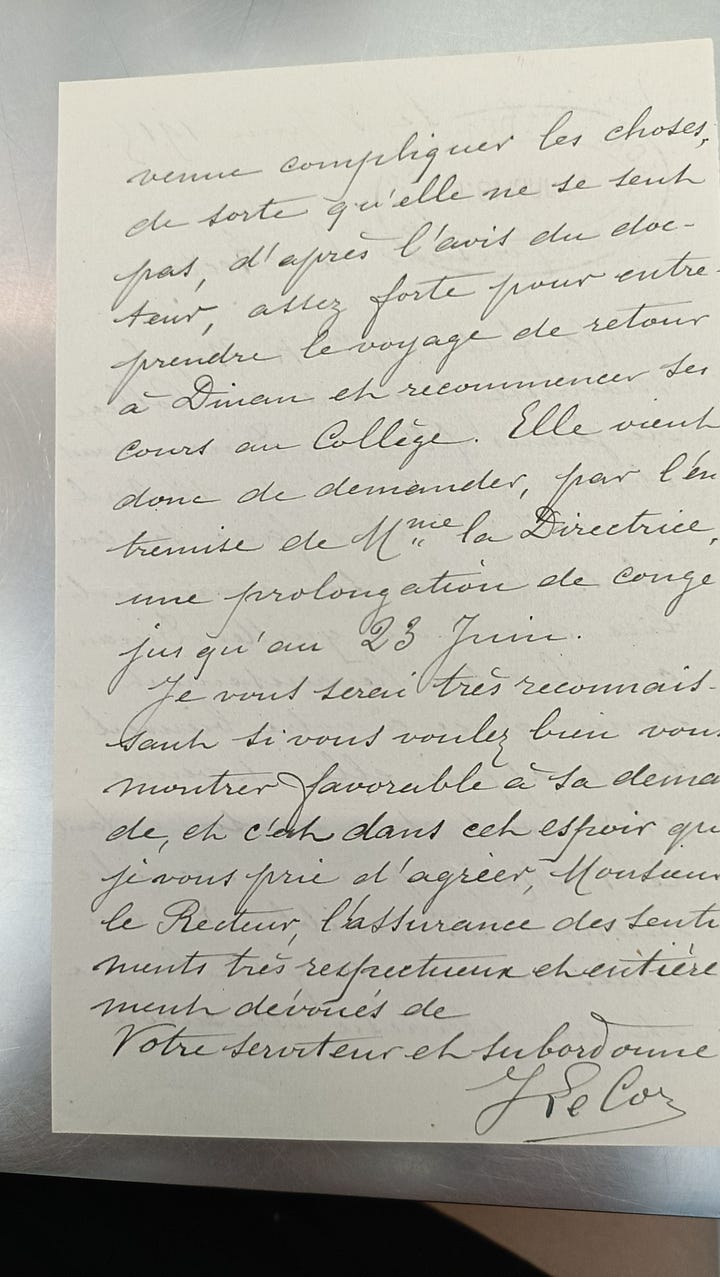 venue compliquer les choses,
de sorte qu'elle ne se sent
pas, d'après l'avis du doc-
teur, assez forte pour entre-
prendre le voyage de retour
à Dinan et recommencer ses
cours au Collège. Elle vient
donc de demander, par l'en
tremise de Mme la Directrice,
une prolongation de congé
jusqu'au 23 Juin.
Je vous serai très reconnais-
sant si vous voulez bien vous
montrer favorable à sa deman
de, et c'est dans cet espoir que
je vous prie d'agréer, Monsieur
le Recteur, l'assurance des senti
ments très respectueux et entière
ment dévoués de
Votre serviteur et subordonné